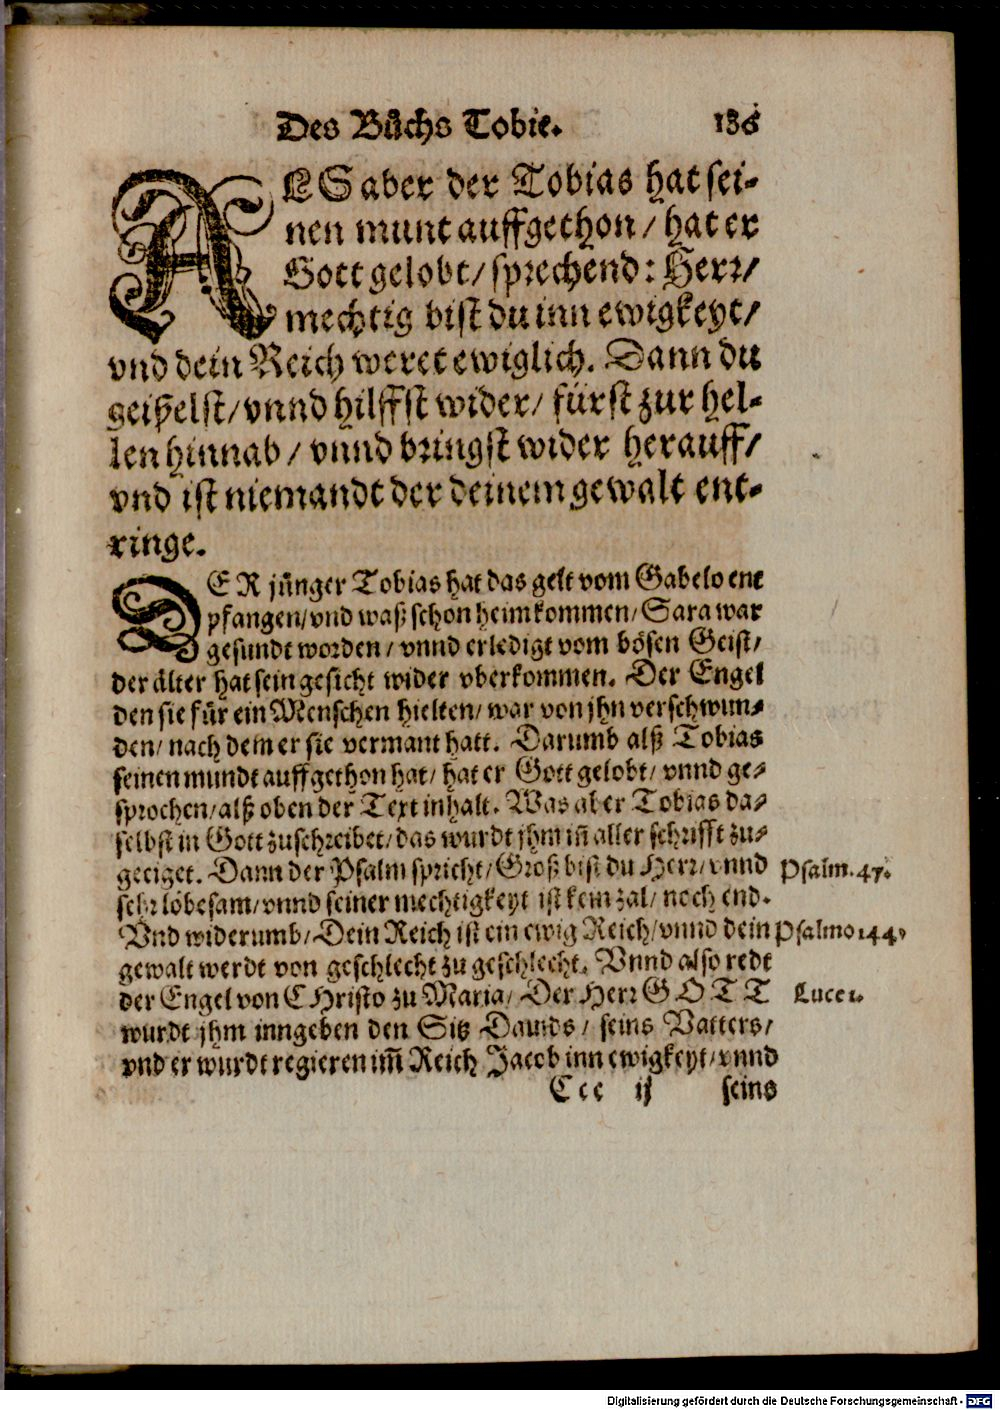 Des Bůchs Tobie. 136
ALS aber der Tobias hat sei-
nen munt auffgethon / hat er
Gott gelobt / sprechend: Herr /
mechtig bist du inn ewigkeyt /
vnd dein Reich weret ewiglich. Dann du
geißelst / vnnd hilffst wider / fürst zur hel-
len hinnab / vnnd bringst wider herauff /
vnd ist niemandt der deinem gewalt ent-
ringe.
DER jünger Tobias hat das gelt vom Gabelo ent
pfangen / vnd waß schon heimkommen / Sara war
gesundt worden / vnnd erledigt vom bösen Geist /
der älter hat sein gesicht wider vberkommen. Der Engel
den sie für ein Menschen hielten / war von jhn verschwun-
den / nach dem er sie vermant hatt. Darumb alß Tobias
seinen mundt auffgethon hat / hat er Gott gelobt / vnnd ge-
sprochen / alß oben der Text inhalt. Was aber Tobias da-
selbst in Gott zuschreibet / das wurdt jhm iñ aller schrifft zu-
geeiget. Dann der Psalm spricht / Groß bist du Herr / vnnd Psalm. 47.
sehr lobesam / vnnd seiner mechtigkeyt ist kein zal / noch end.
Vnd widerumb / Dein Reich ist ein ewig Reich / vnnd dein Psalmo 144.
gewalt werdt von geschlecht zu geschlecht. Vnnd also redt
der Engel von CHristo zu Maria / Der Herr GOTT Luce 1.
wurdt jhm inngeben den Sitz Dauids / seins Vatters /
vnd er wurdt regieren im̃ Reich Jacob inn ewigkeyt / vnnd
Ccc ij seins
Digitalisierung gefördert durch die Deutsche Forschungsgemeinschaft - DFG